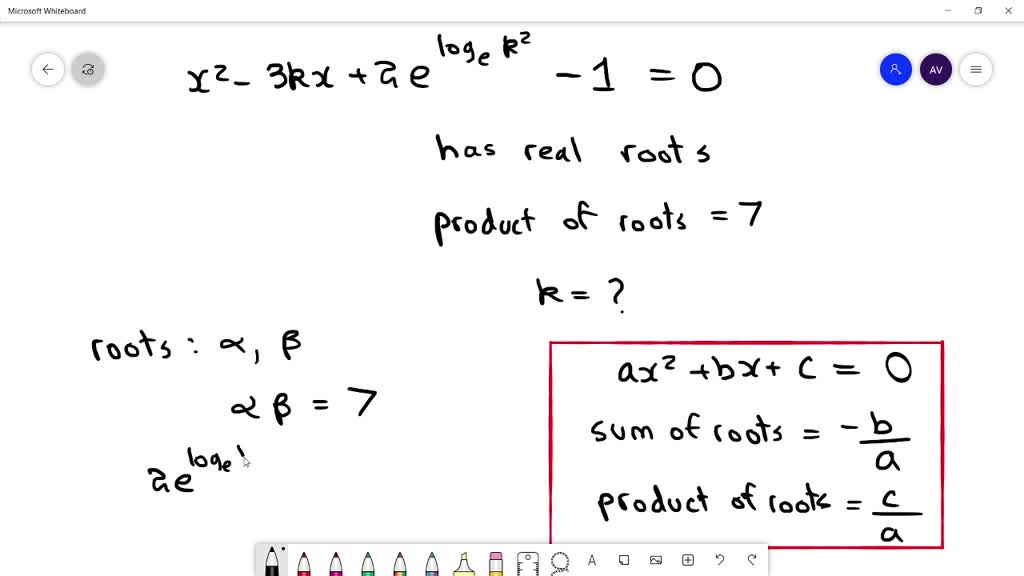 Microsoft Whiteboard
AV
x² - 3kx + 2e^{log_e k²} - 1 = 0
has real roots
product of roots = 7
k = ?
roots : α, β
αβ = 7
2e^{log_e}
ax² + bx + c = 0
sum of roots = -b/a
product of roots = c/a
A